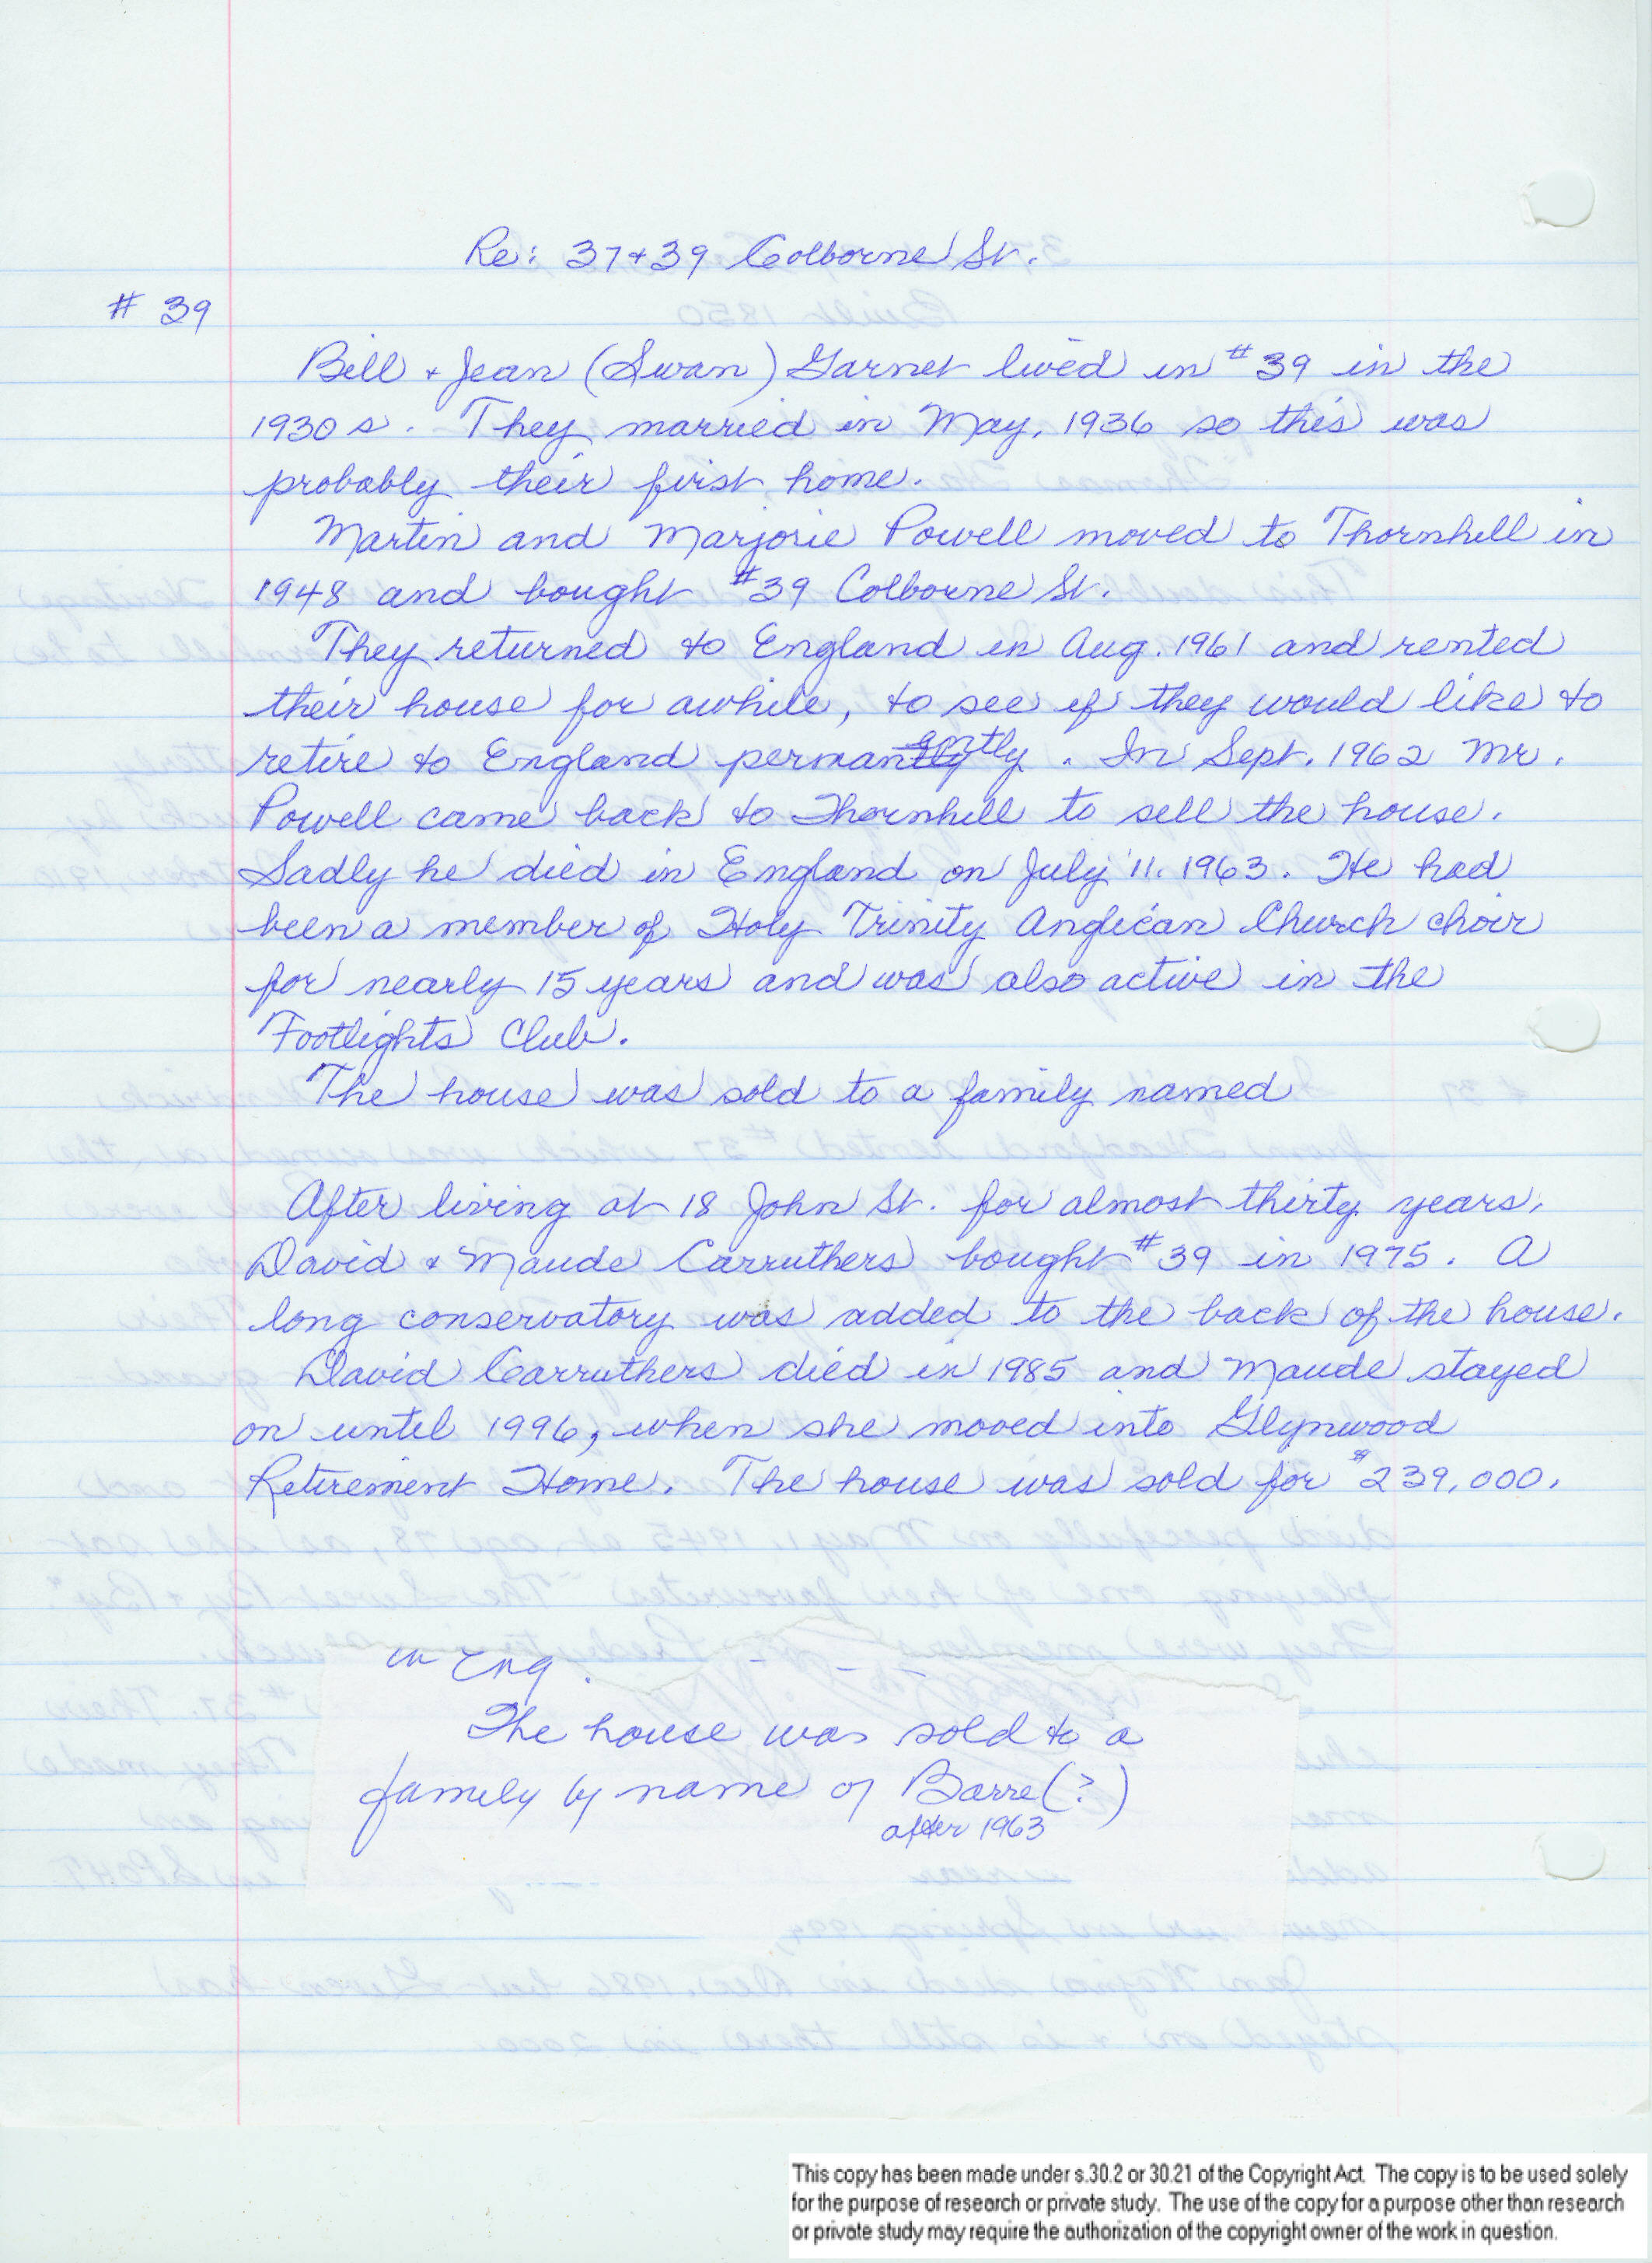 Re: 37+39 Colborne St.
# 39
Bill + Jean (Swan) Garnet lived in #39 in the
1930s. They married in May, 1936 so this was
probably their first home.
Martin and Marjorie Powell moved to Thornhill in
1948 and bought #39 Colborne St.
They returned to England in Aug. 1961 and rented
their house for awhile, to see if they would like to
retire to England permanently. In Sept. 1962 Mr.
Powell came back to Thornhill to sell the house.
Sadly he died in England on July 11. 1963. He had
been a member of Holy Trinity Anglican Church choir
for nearly 15 years and was also active in the
Footlights Club.
The house was sold to a family named
After living at 18 John St. for almost thirty years,
David + Maude Carruthers bought #39 in 1975. A
long conservatory was added to the back of the house.
David Carruthers died in 1985 and Maude stayed
on until 1996, when she moved into Glynwood
Retirement Home. The house was sold for $239,000.
in Eng.
The house was sold to a
family by name of Barre(?)
after 1963
This copy has been made under s.30.2 or 30.21 of the Copyright Act. The copy is to be used solely
for the purpose of research or private study. The use of the copy for a purpose other than research
or private study may require the authorization of the copyright owner of the work in question.